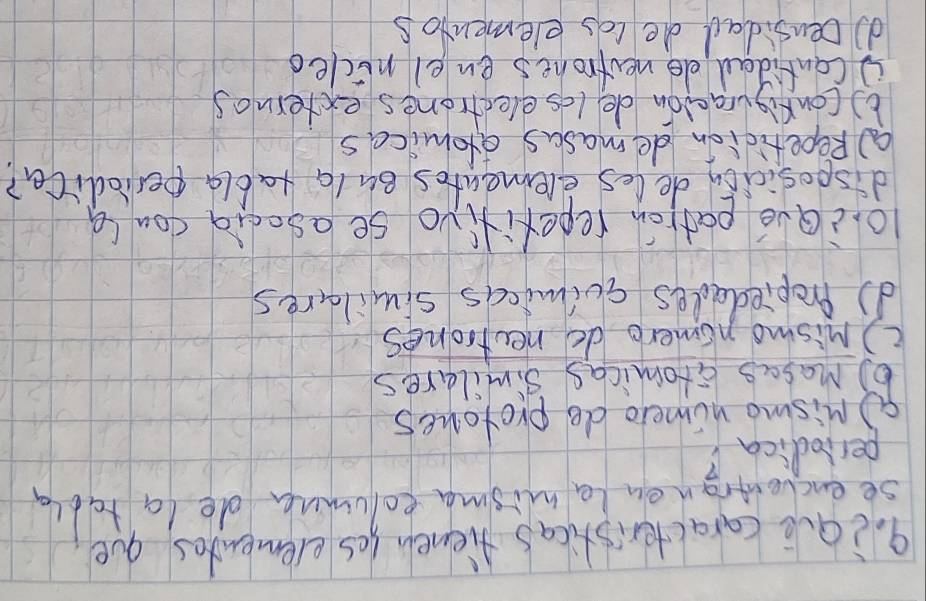 9.¿Qué características tienen los elementos que
se encuentran en la misma columna de la tabla
periódica?
a) Mismo número de protones
b) Masas atómicas similares
c) Mismo número de neutrones
d) Propiedades químicas similares
10.¿Qué patrón repetitivo se asocia con la
disposición de los elementos en la tabla periódica?
a) Repetición de masas atómicas
b) Configuración de los electrones externos
c) Cantidad de neutrones en el núcleo
d) Densidad de los elementos